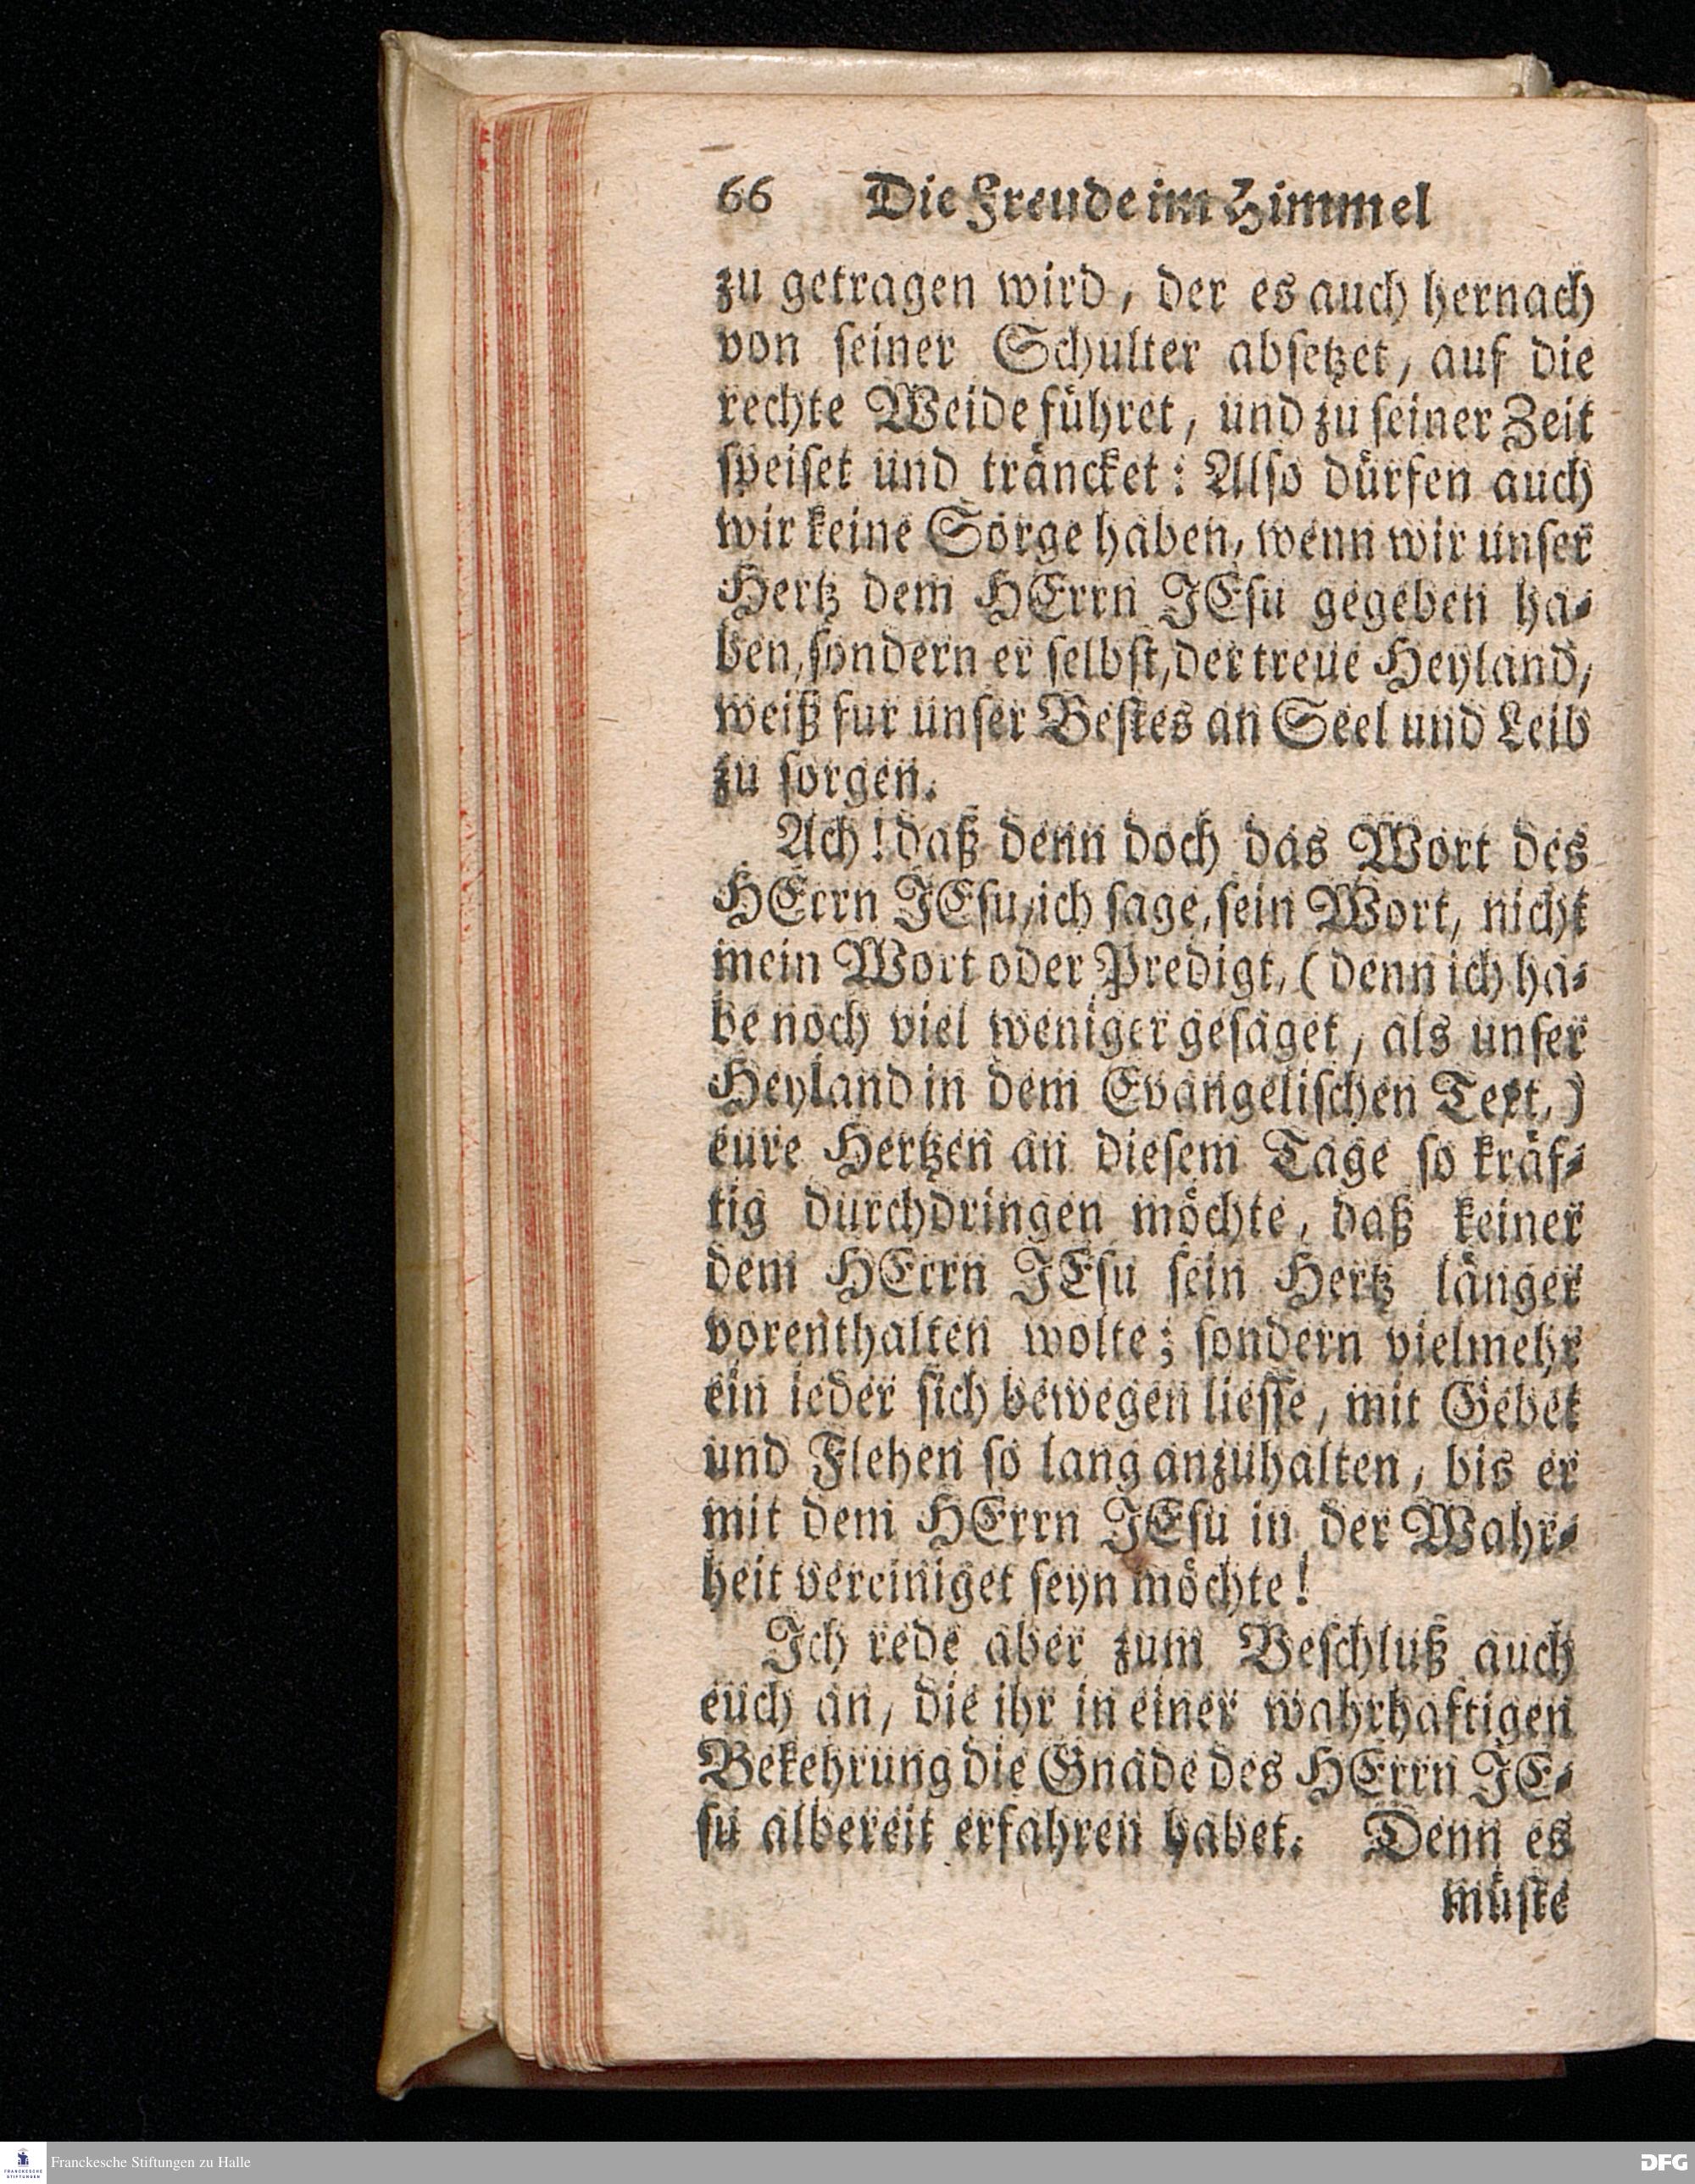 66 Die Freude im Himmel
zu getragen wird, der es auch hernach
von seiner Schulter absetzet, auf die
rechte Weide führet, und zu seiner Zeit
speiset und träncket: Also dürfen auch
wir keine Sorge haben, wenn wir unser
Hertz dem HErrn JEsu gegeben ha-
ben, sondern er selbst, der treue Heyland,
weiß fur unser Bestes an Seel und Leib
zu sorgen.
Ach! daß denn doch das Wort des
HErrn JEsu, ich sage, sein Wort, nicht
mein Wort oder Predigt, (denn ich ha-
be noch viel weniger gesaget, als unser
Heyland in dem Evangelischen Text,)
eure Hertzen an diesem Tage so kräf-
tig durchdringen möchte, daß keiner
dem HErrn JEsu sein Hertz länger
vorenthalten wolte; sondern vielmehr
ein ieder sich bewegen liesse, mit Gebet
und Flehen so lang anzuhalten, bis er
mit dem HErrn JEsu in der Wahr-
heit vereiniget seyn möchte!
Ich rede aber zum Beschluß auch
euch an, die ihr in einer wahrhaftigen
Bekehrung die Gnade des HErrn JE-
su albereit erfahren habet. Denn es
müste
FRANCKESCHE STIFTUNGEN
Franckesche Stiftungen zu Halle
DFG